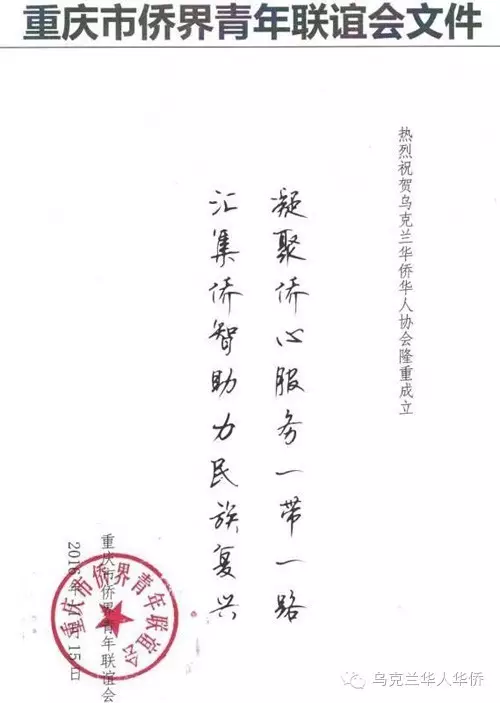 重庆市侨界青年联谊会文件
热烈祝贺乌克兰华侨华人协会隆重成立
凝聚侨心服务一带一路
汇集侨智助力民族复兴
重庆市侨界青年联谊会
2016年 月15日
重庆市侨界青年联谊会
乌克兰华人华侨